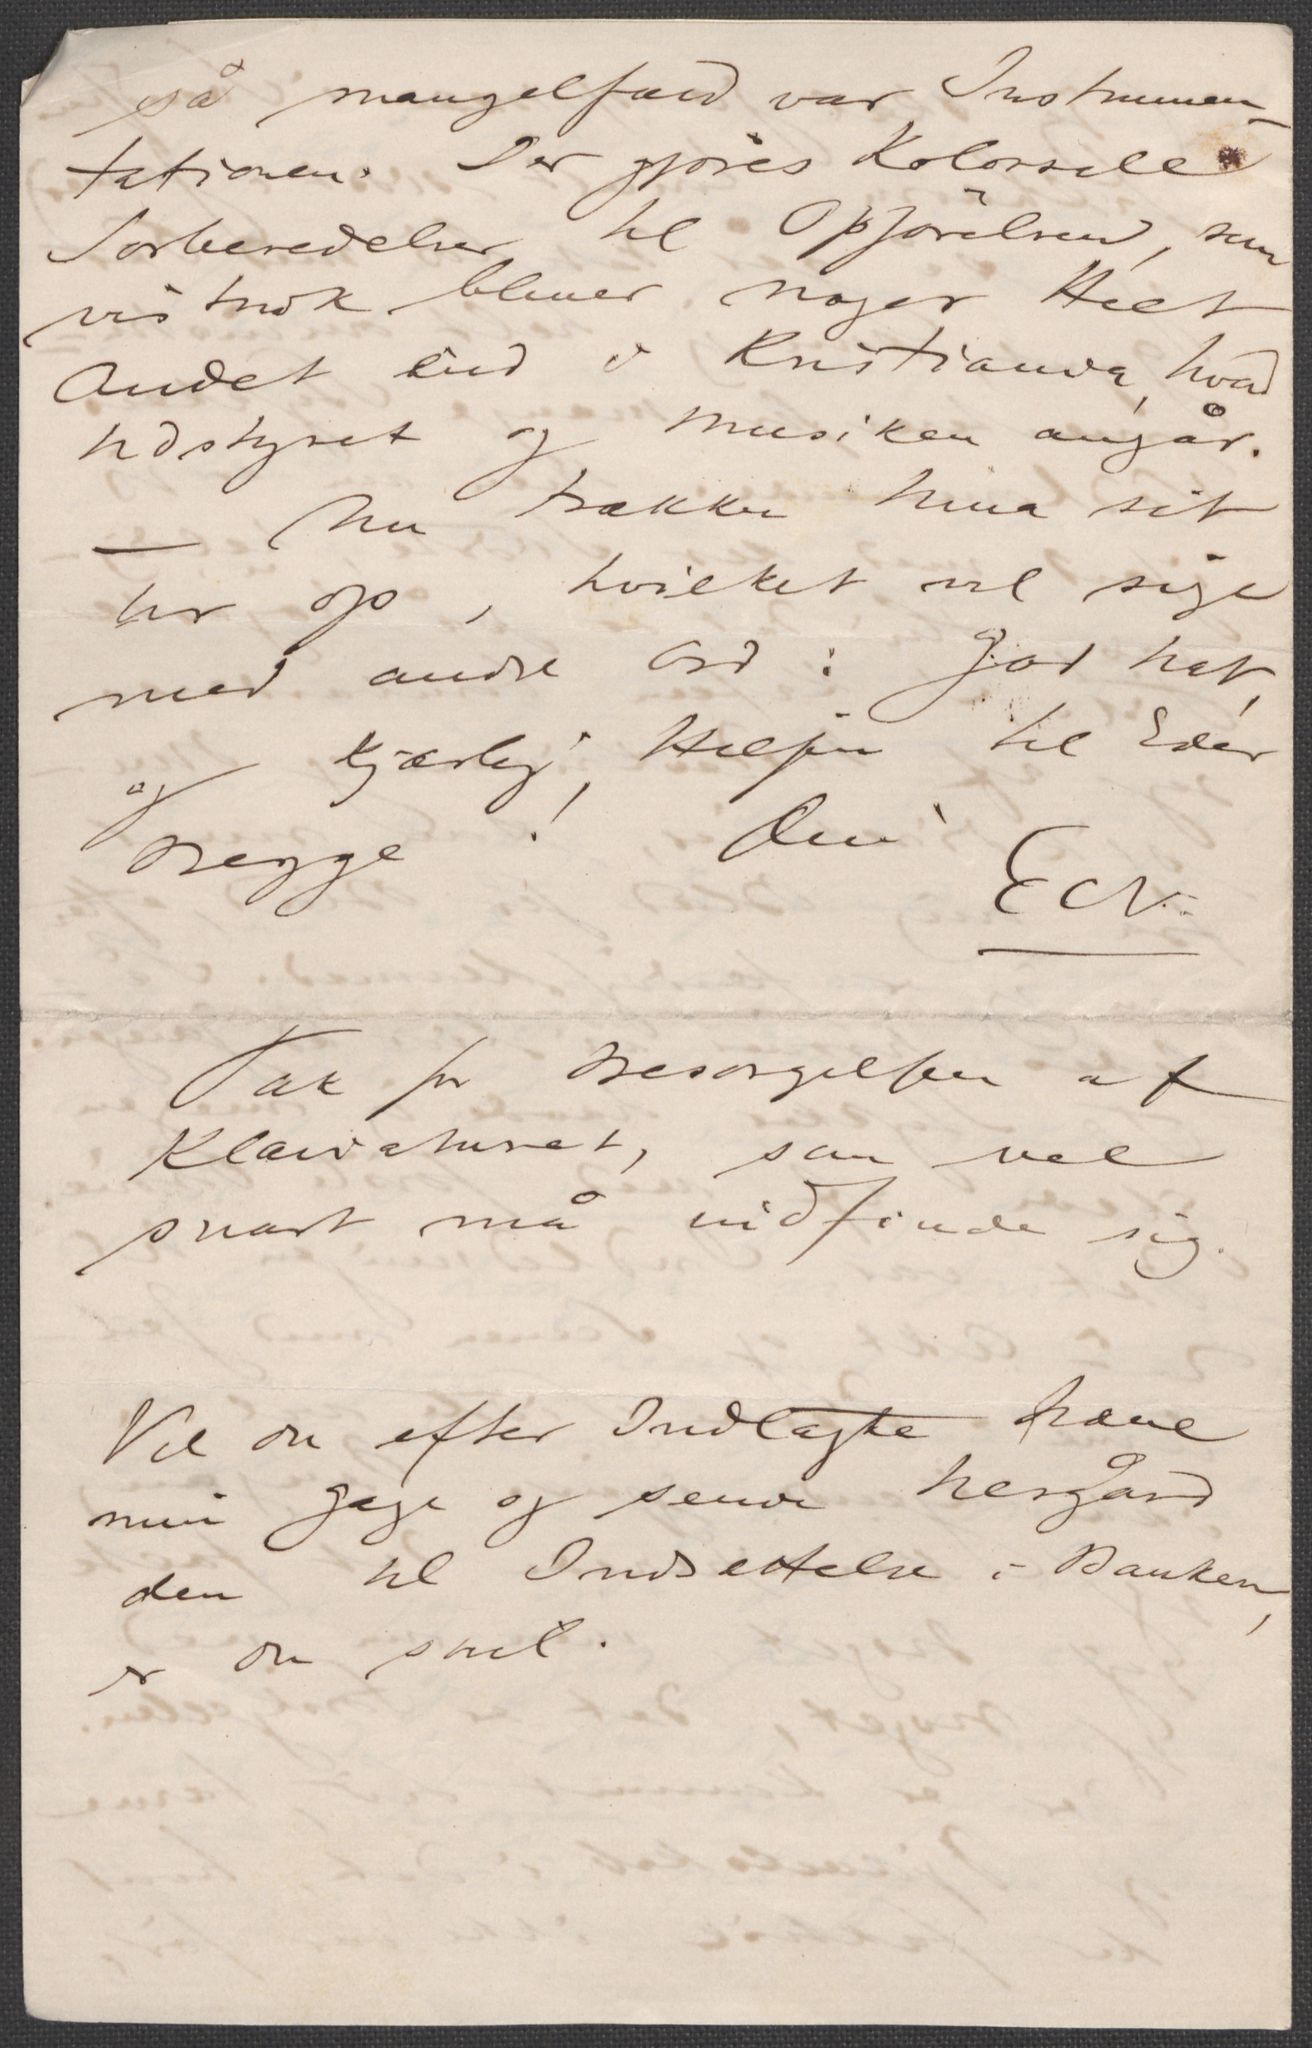 så mangelfuld var Instrumen-
tationen. Der gjøres Kolossale
Forberedelser til Opførelsen, som
vistnok bliver noget Helt
Andet end i Kristiania, hvad
Udstyret og Musiken angår.
— Nu trækker Nina sit
Ur op, hvilket vil sige
med andre Ord: God Nat,
og kjærlig Hilsen til Eder
Begge! Din
EG
Tak for Besørgelsen af
Klaveret, som vel
snart må indfinde sig.
Vil du efter Indlagte hæve
min Gage og sende
den til Indsættelse i Banken,
er du snil.